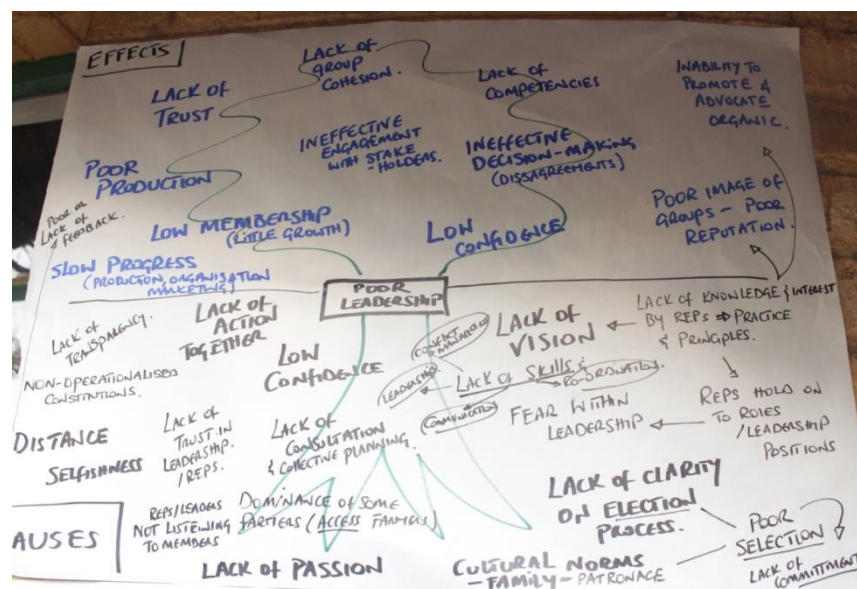 EFFECTS
LACK OF
GROUP
COHESION.
LACK OF
TRUST
LACK OF
COMPETENCIES
INABILITY TO
PROMOTE &
ADVOCATE
ORGANIC.
INEFFECTIVE
ENGAGEMENT
WITH STAKE
-HOLDERS.
INEFFECTIVE
DECISION-MAKING
(DISSAGREEMENTS)
POOR
PRODUCTION
POOR OR
LACK OF
FEEDBACK.
LOW MEMBERSHIP
(LITTLE GROWTH)
LOW
CONFIDENCE
POOR IMAGE OF
GROUPS - POOR
REPUTATION.
SLOW PROGRESS
(PRODUCTION, ORGANISATION
MARKETING)
POOR
LEADERSHIP
LACK OF
TRANSPARENCY.
LACK OF
ACTION
TOGETHER
LOW
CONFIDENCE
CONFLICT
MANAGEMENT
LACK OF
VISION
LACK OF KNOWLEDGE & INTEREST
BY REPS ⇒ PRACTICE
& PRINCIPLES.
NON-OPERATIONALISED
CONSTITUTIONS.
LEADERSHIP.
LACK OF SKILLS &
CO-ORDINATION
COMMUNICATION
FEAR WITHIN
LEADERSHIP
REPS HOLD ON
TO ROLES
/LEADERSHIP
POSITIONS
DISTANCE
SELFISHNESS
LACK OF
TRUST IN
LEADERSHIP.
/REPS.
LACK OF
CONSULTATION
& COLLECTIVE PLANNING.
LACK OF CLARITY
ON ELECTION
PROCESS.
REPS/LEADERS
NOT LISTENING
TO MEMBERS
DOMINANCE OF SOME
PARTIERS (ACCESS FARMERS)
AUSES
LACK OF PASSION
CULTURAL NORMS
- FAMILY - PATRONAGE
POOR
SELECTION
LACK OF
COMMITTMENT